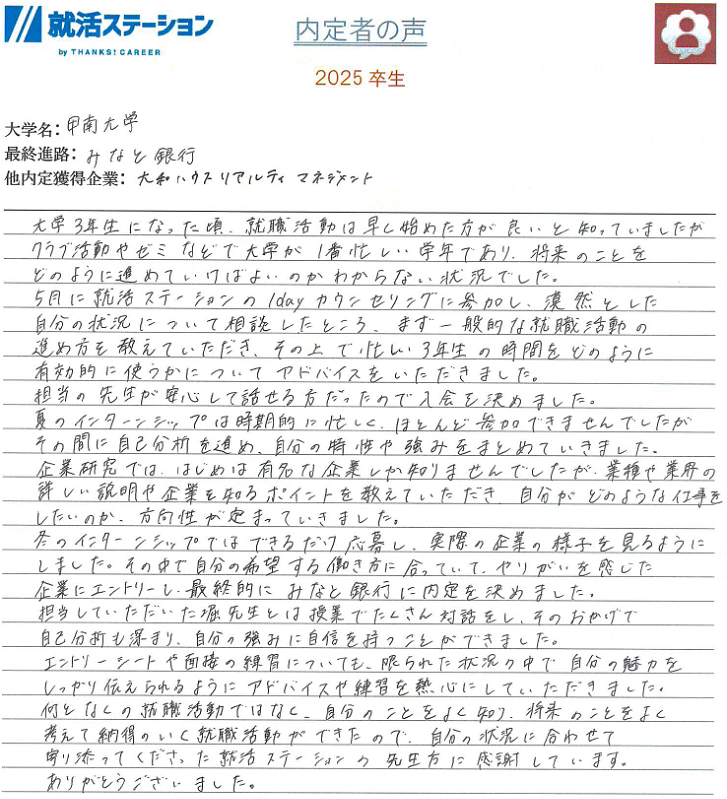 就活ステーション
by THANKS! CAREER
内定者の声
2025 卒生
大学名：甲南大学
最終進路：みなと銀行
他内定獲得企業：大和ハウスリアルティマネジメント
大学3年生になった頃、就職活動は早く始めた方が良いと知っていましたが
クラブ活動やゼミなどで大学が1番忙しい学年であり、将来のことを
どのように進めていけばよいのかわからない状況でした。
5月に就活ステーションの1dayカウンセリングに参加し、漠然とした
自分の状況について相談したところ、まず一般的な就職活動の
進め方を教えていただき、その上で忙しい3年生の時間をどのように
有効的に使うかについてアドバイスをいただきました。
担当の先生が安心して話せる方だったので入会を決めました。
夏のインターンシップは時期的に忙しく、ほとんど参加できませんでしたが
その間に自己分析を進め、自分の特性や強みをまとめていきました。
企業研究では、はじめは有名な企業しか知りませんでしたが、業種や業界の
詳しい説明や企業を知るポイントを教えていただき、自分がどのような仕事を
したいのか、方向性が定まっていきました。
冬のインターンシップではできるだけ応募し、実際の企業の様子を見るように
しました。その中で自分の希望する働き方に合っていて、やりがいを感じた
企業にエントリーし、最終的にみなと銀行に内定を決めました。
担当していただいた堀先生とは授業でたくさん対話をし、そのおかげで
自己分析も深まり、自分の強みに自信を持つことができました。
エントリーシートや面接の練習についても、限られた状況の中で自分の魅力を
しっかり伝えられるようにアドバイスや練習を熱心にしていただきました。
何となくの就職活動ではなく、自分のことをよく知り、将来のことをよく
考えて納得のいく就職活動ができたので、自分の状況に合わせて
寄り添ってくださった就活ステーションの先生方に感謝しています。
ありがとうございました。